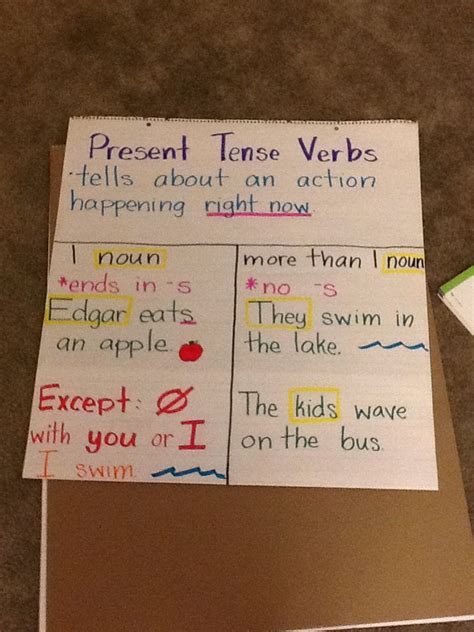 Present Tense Verbs
·tells about an action
happening right now.
1 noun
*ends in -s
Edgar eats
an apple.
Except: Ø
with you or I
I swim
more than 1 noun
*no -s
They swim in
the lake.
The kids wave
on the bus.